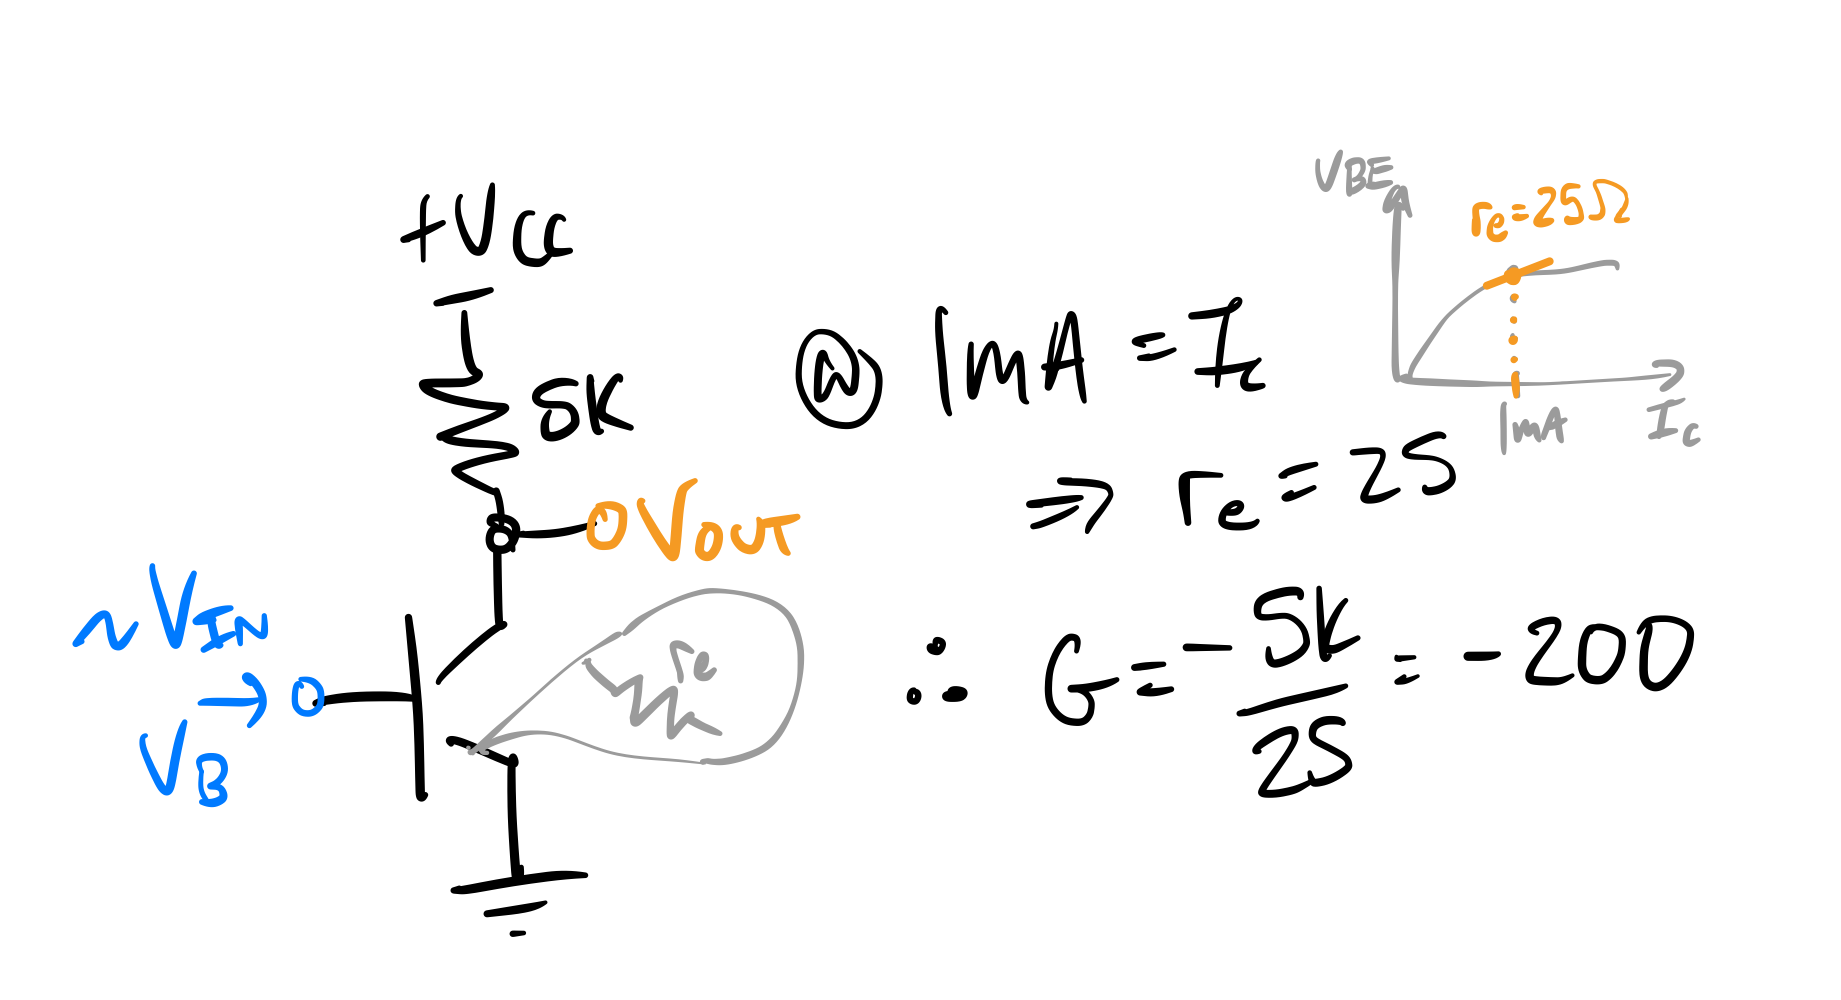 +VCC
5K
VOUT
~VIN
VB
re
@ 1mA = Ic
⇒ re = 25
∴ G = -5K/25 = -200
VBE
re=25Ω
1mA
Ic